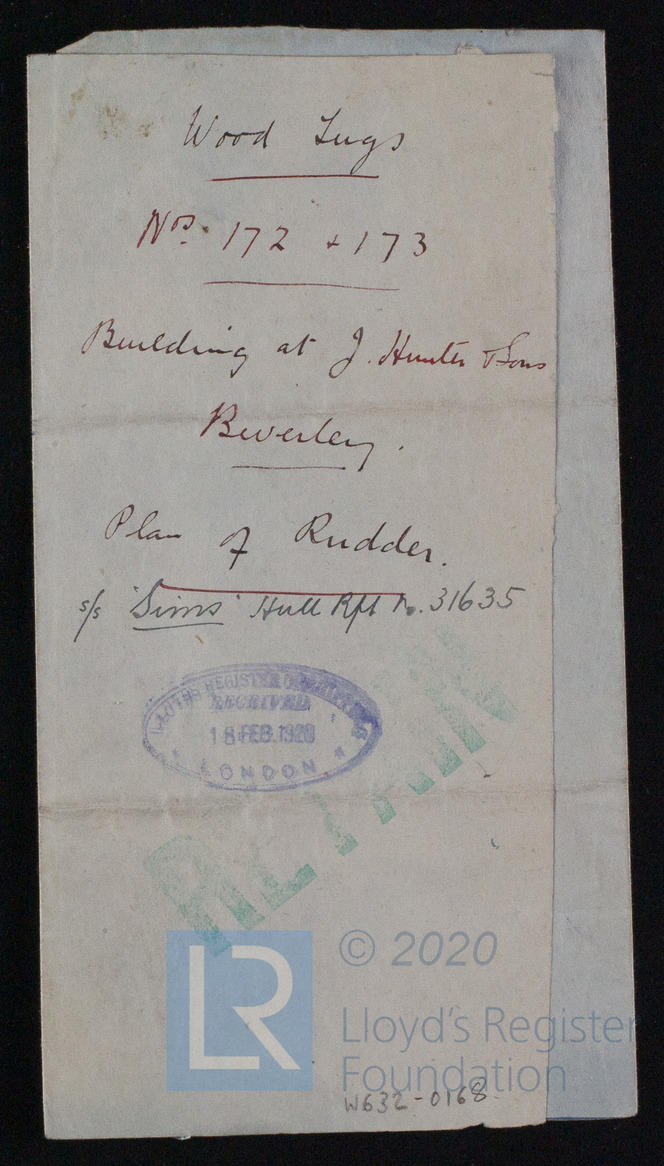 Wood Tugs
Nos. 172 & 173
Building at J. Hunter & Sons
Beverley.
Plan of Rudder.
s/s "Sims" Hull Rpt No. 31635
LLOYDS REGISTER OF SHIPPING
RECEIVED
18 FEB. 1920
LONDON
RETAIN
LR
© 2020
Lloyd's Register
Foundation
W632-0168